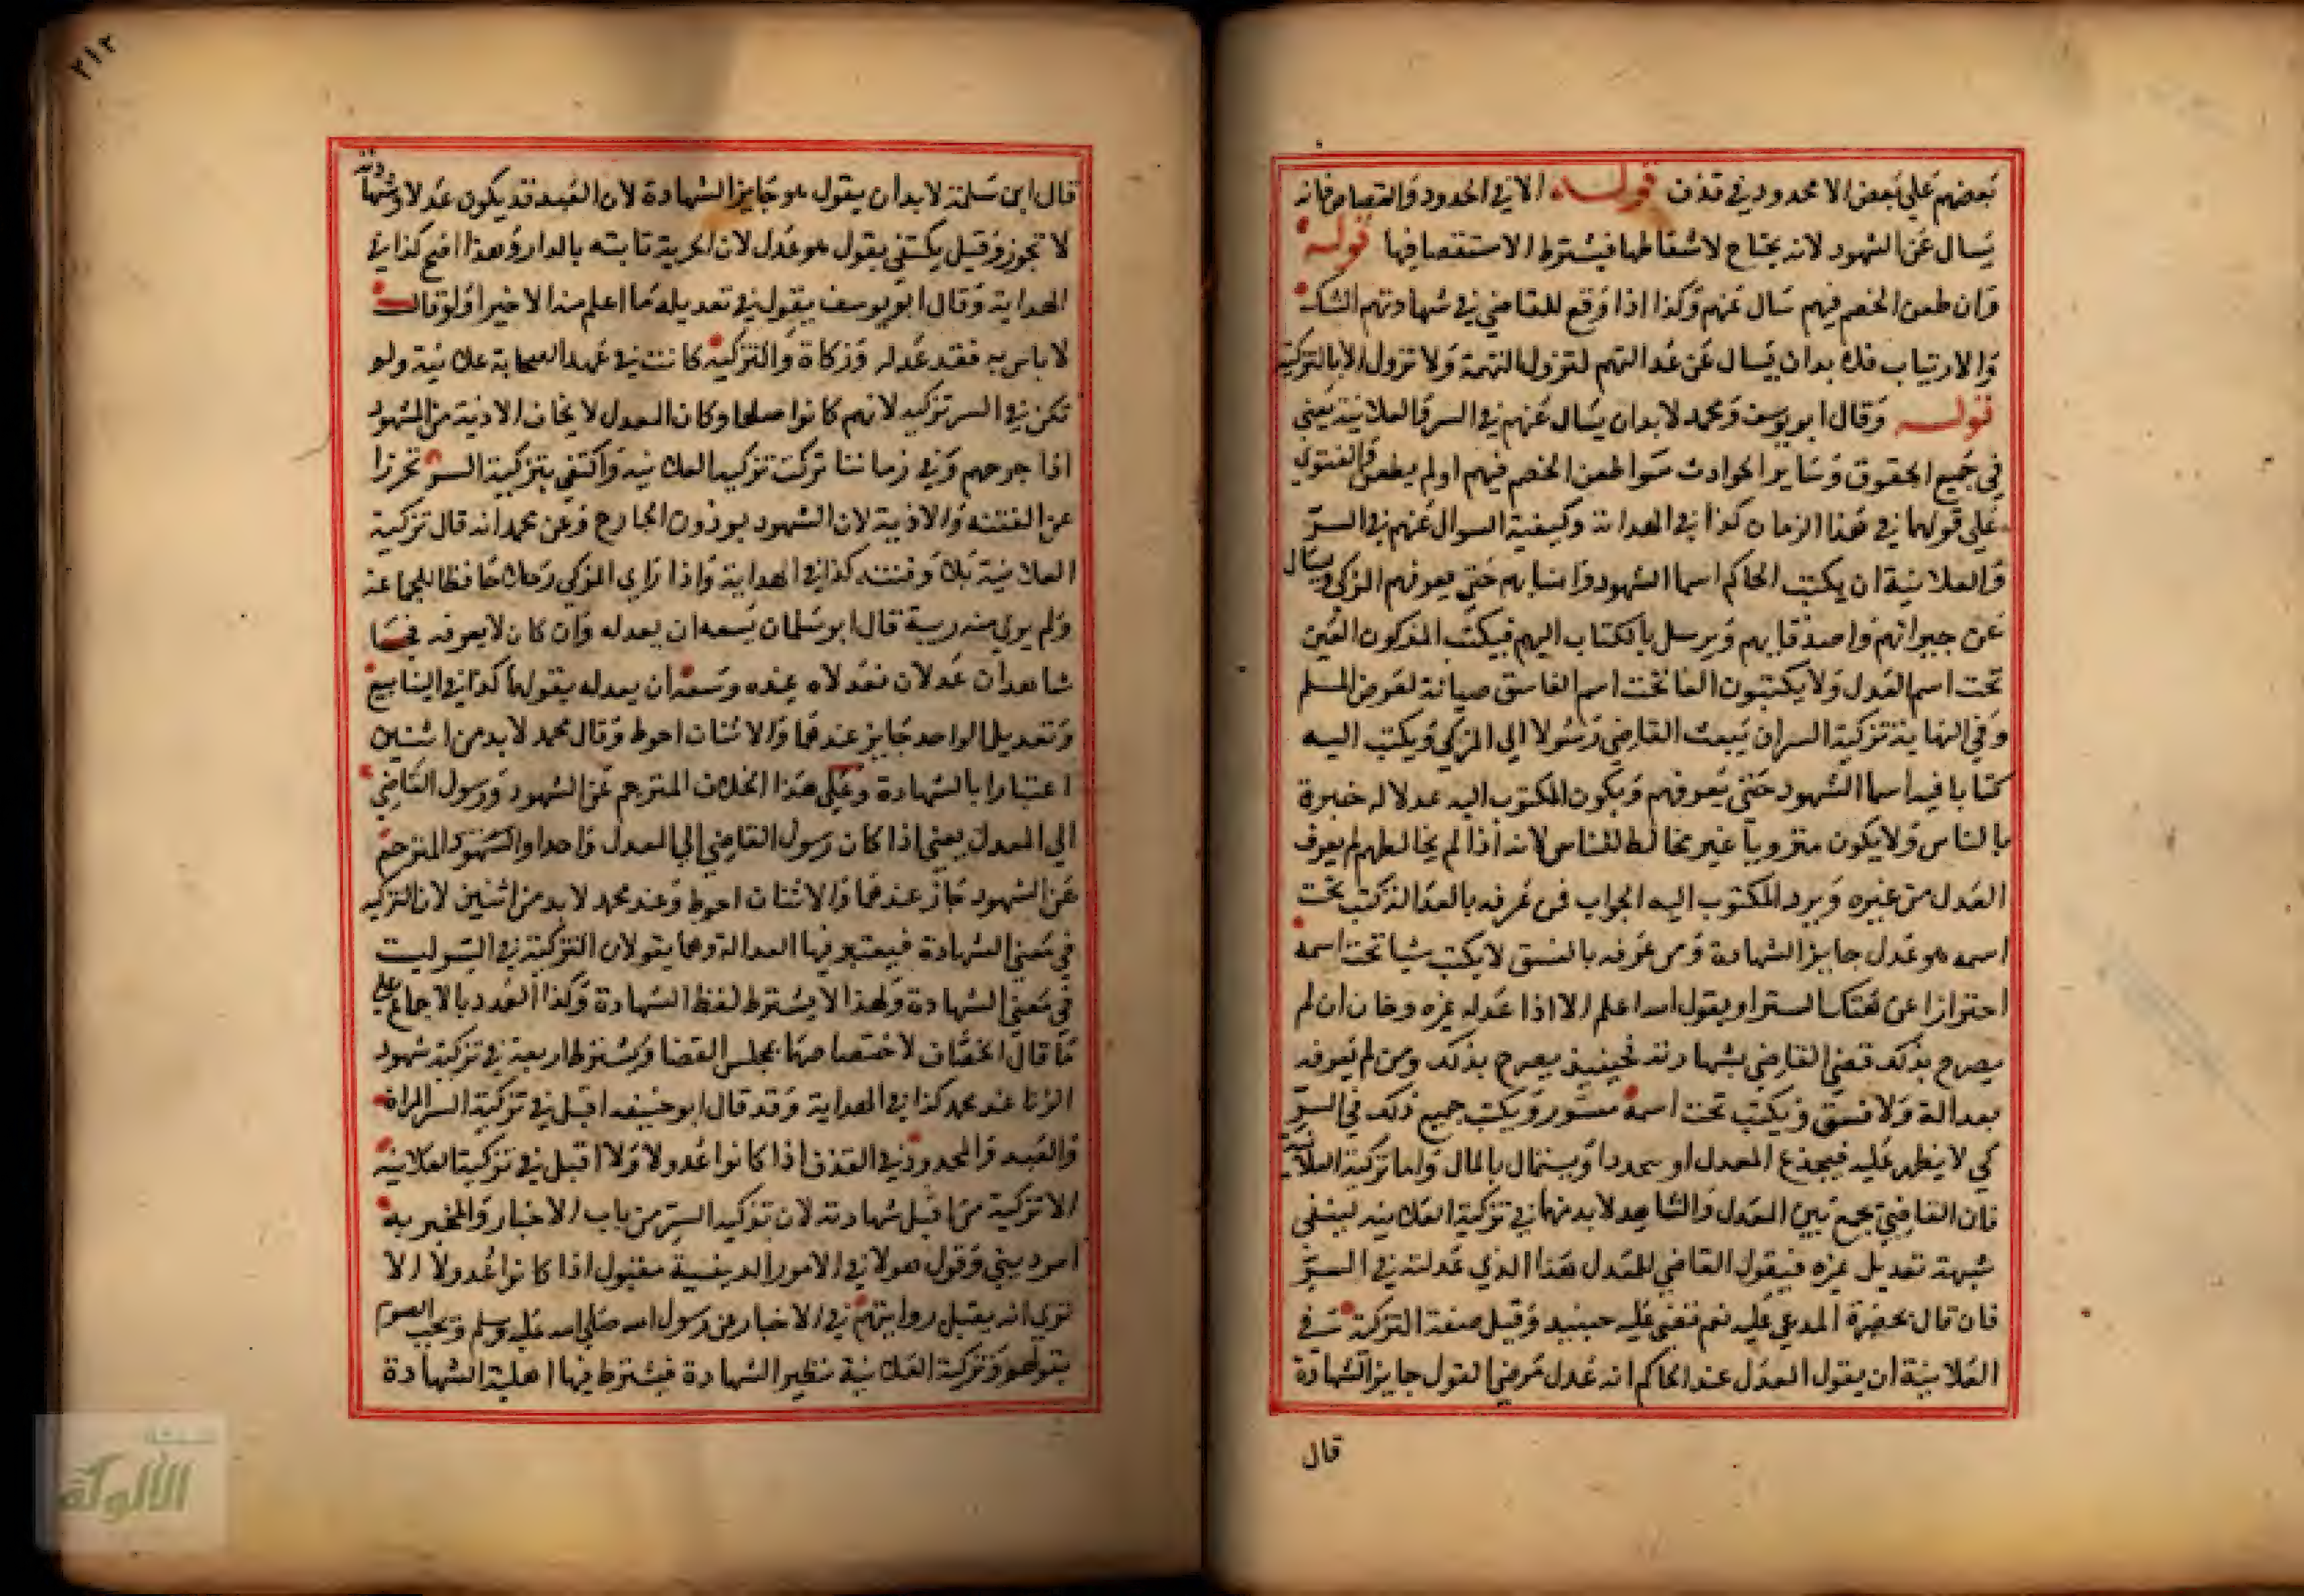 بعضهم على بعض الا محدود في قذف قوله الا في الحدود والقصاص فانه
يسال عن الشهود لانه يحتاج لاسقاطها فيشترط الاستقصا فيها قوله
وان طعن الخصم فيهم سال عنهم وكذا اذا وقع للقاضي في شهادتهم الشك
والارتياب فلا بد ان يسال عن عدالتهم لتزول التهمة ولا تزول الا بالتزكية
قوله وقال ابو يوسف ومحمد لا بد ان يسال عنهم في السر والعلانية يعني
في جميع الحقوق وساير الحوادث سوا طعن الخصم فيهم او لم يطعن والفتوي
علي قولهما في هذا الزمان كذا في الهداية وكيفية السوال عنهم في السر
والعلانية ان يكتب الحاكم اسما الشهود وانسابهم حتي يعرفهم المزكي ويسال
عن جيرانهم واصدقايهم ويرسل بالكتاب اليهم فيكتب المزكون
تحت اسم العدل ولا يكتبون الفا تحت اسم الفاسق صيانة لعرض المسلم
وفي النهاية تزكية السر ان يبعث القاضي رسولا الي المزكي ويكتب اليه
كتابا فيه اسما الشهود حتي يعرفهم ويكون المكتوب اليه عدلا له خبرة
بالناس ولا يكون منزويا غير مخالط للناس لانه اذا لم يخالطهم لم يعرف
العدل من غيره ويرد المكتوب اليه الجواب فمن عرفه بالعدالة كتب تحت
اسمه هو عدل جايز الشهادة ومن عرفه بالفسق لا يكتب شيا تحت اسمه
احترازا عن هتك الستر او يقول الله اعلم الا اذا عدله غيره وخاف ان لم
يصرح بذلك قضي القاضي بشهادته فحينيذ يصرح بذلك ومن لم يعرفه
بعدالة ولا فسق يكتب تحت اسمه مستور ويكتب جميع ذلك في السر
كي لا يظهر عليه فيخدع المعدل او يهدد او يستمال بالمال واما تزكية العلانية
فان القاضي يجمع بين المعدل والشاهد لا بد منها في تزكية العلانية لينفي
شبهة تعديل غيره فيقول القاضي للمعدل هذا الذي عدلته في السر
فان قال بحضرة المدعي عليه نعم قضي عليه حينيذ وقيل صفة التزكية في
العلانية ان يقول المعدل عند الحاكم انه عدل مرضي القول جايز الشهادة
قال
٢١٢
قال ابن سلمة لا بد ان يقول هو جايز الشهادة لان العبد قد يكون عدلا وشهادته
لا تجوز وقيل يكتفي بقول هو عدل لان الحرية ثابته بالدار وهذا اصح كذا في
الهداية وقال ابو يوسف يقول في تعديله ما اعلم منه الا خيرا ولو قال
لا باس به فقد عدله وزكاه والتزكية كانت في عهد الصحابة علانية ولم
تكن في السر تزكية لانهم كانوا صلحا وكان المعدل لا يخاف الاذية من الشهود
اذا جرحهم وفي زماننا تركت تزكية العلانية واكتفي بتزكية السر تحرزا
عن الفتنة والاذية لان الشهود يوذون الجارح وعن محمد انه قال تزكية
العلانية بلا وفتنه كذا في الهداية واذا راي المزكي رجلا حافظا للجماعة
ولم يري منه ريبة قال ابو سلمان يسعه ان يعدله وان كان لا يعرفه فجا
شاهدان عدلان فعدلاه عنده وسعه ان يعدله بقولهما كذا في الينابيع
وتعديل الواحد جايز عندهما والاثنان احوط وقال محمد لا بد من اثنين
اعتبارا بالشهادة وعلي هذا الخلاف المترجم عن الشهود ورسول القاضي
الي المعدل يعني اذا كان رسول القاضي الي المعدل واحدا والشهود المترجم
عن الشهود جاز عندهما والاثنان احوط وعند محمد لا بد من اثنين لان التزكية
في معني الشهادة فيعتبر فيها العدالة وهما يقولان التزكية في السر ليست
في معني الشهادة ولهذا لا يشترط لفظ الشهادة وكذا العدد بالاجماع علي
ما قال الخصاف لاختصاصها بمجلس القضا ويشترط اربعة في تزكية شهود
الزنا عند محمد كذا في الهداية وقد قال ابو حنيفه اقبل في تزكية السر المراة
والعبد والمحدود في القذف اذا كانوا عدولا ولا اقبل في تزكية العلانية
الا تزكية من اقبل شهادته لان تزكية السر من باب الاخبار والمخبر به
امر ديني وقول هولا في الامور الدينية مقبول اذا كانوا عدولا الا
تري انه يقبل روايتهم في الاخبار عن رسول الله صلي الله عليه وسلم ويجب الصوم
بقولهم وتزكية العلانية نظير الشهادة فيشترط فيها اهلية الشهادة
الألوكة